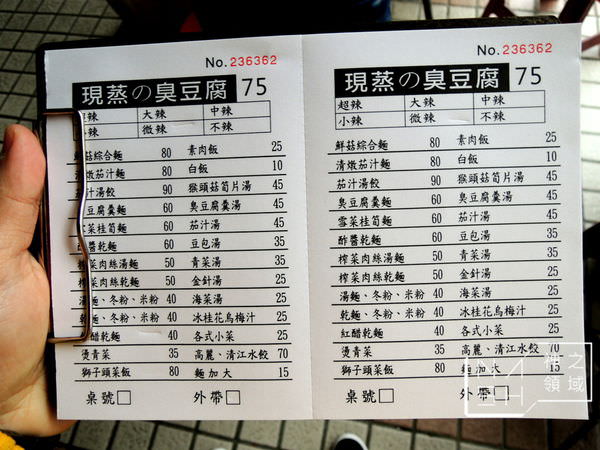 No. 236362
現蒸の臭豆腐 75
辣 大辣 中辣
小辣 微辣 不辣
鮮菇綜合麵 80 素肉飯 25
清燉茄汁麵 80 白飯 10
茄汁湯餃 90 猴頭菇筍片湯 45
臭豆腐羹麵 60 臭豆腐羹湯 45
雪菜桂筍麵 60 茄汁湯 45
酢醬乾麵 60 豆包湯 35
榨菜肉絲湯麵 50 青菜湯 35
榨菜肉絲乾麵 60 金針湯 25
湯麵、冬粉、米粉 40 海菜湯 25
乾麵、冬粉、米粉 40 冰桂花烏梅汁 25
紅醋乾麵 40 各式小菜 25
燙青菜 35 高麗、清江水餃 70
獅子頭菜飯 80 麵加大 15
桌號□ 外帶□
No. 236362
現蒸の臭豆腐 75
超辣 大辣 中辣
小辣 微辣 不辣
鮮菇綜合麵 80 素肉飯 25
清燉茄汁麵 80 白飯 10
茄汁湯餃 90 猴頭菇筍片湯 45
臭豆腐羹麵 60 臭豆腐羹湯 45
雪菜桂筍麵 60 茄汁湯 45
酢醬乾麵 60 豆包湯 35
榨菜肉絲湯麵 50 青菜湯 35
榨菜肉絲乾麵 60 金針湯 25
湯麵、冬粉、米粉 40 海菜湯 25
乾麵、冬粉、米粉 40 冰桂花烏梅汁 25
紅醋乾麵 40 各式小菜 25
燙青菜 35 高麗、清江水餃 70
獅子頭菜飯 80 麵加大 15
桌號□ 外帶□
之
領域